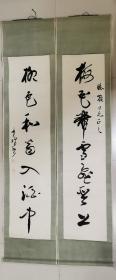 梅花帶雪飛琴上
柳色和烟入酒中